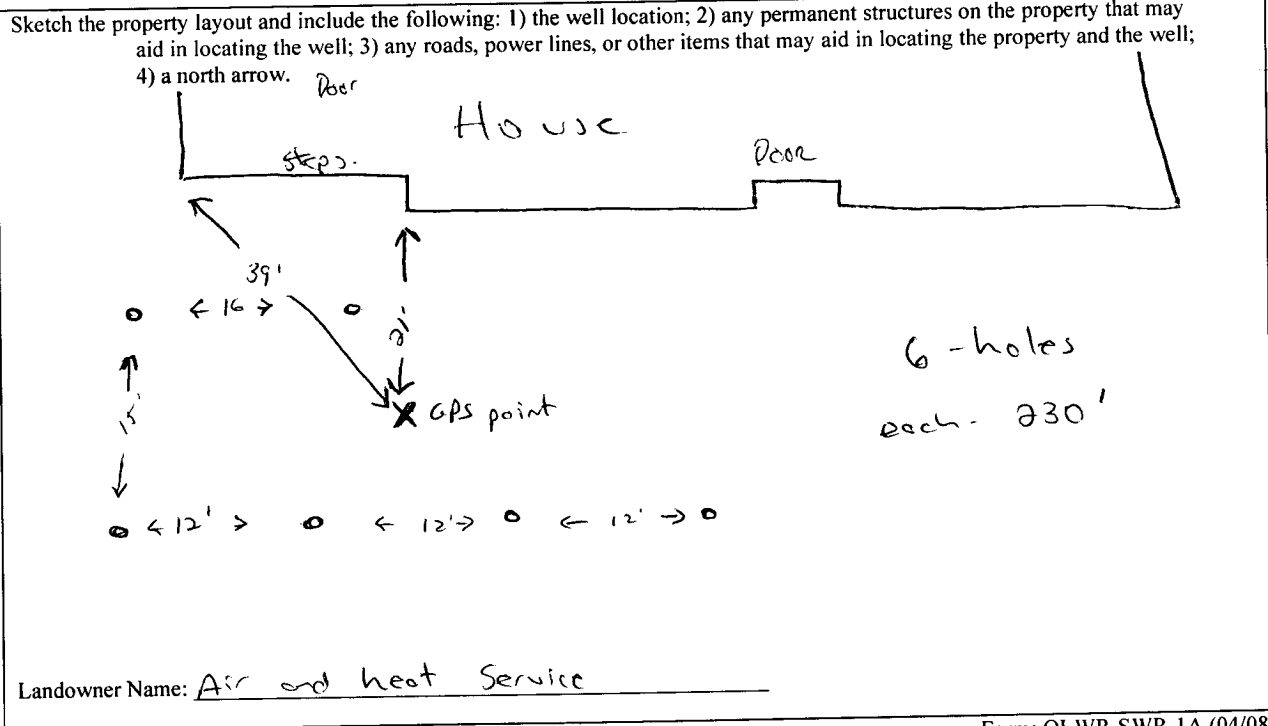 Sketch the property layout and include the following: 1) the well location; 2) any permanent structures on the property that may
aid in locating the well; 3) any roads, power lines, or other items that may aid in locating the property and the well;
4) a north arrow.
Door
House
Steps.
Door
39'
16
21'
6 - holes
X GPS point
each - 230'
15'
12' 12' 12'
Landowner Name: Air and heat Service